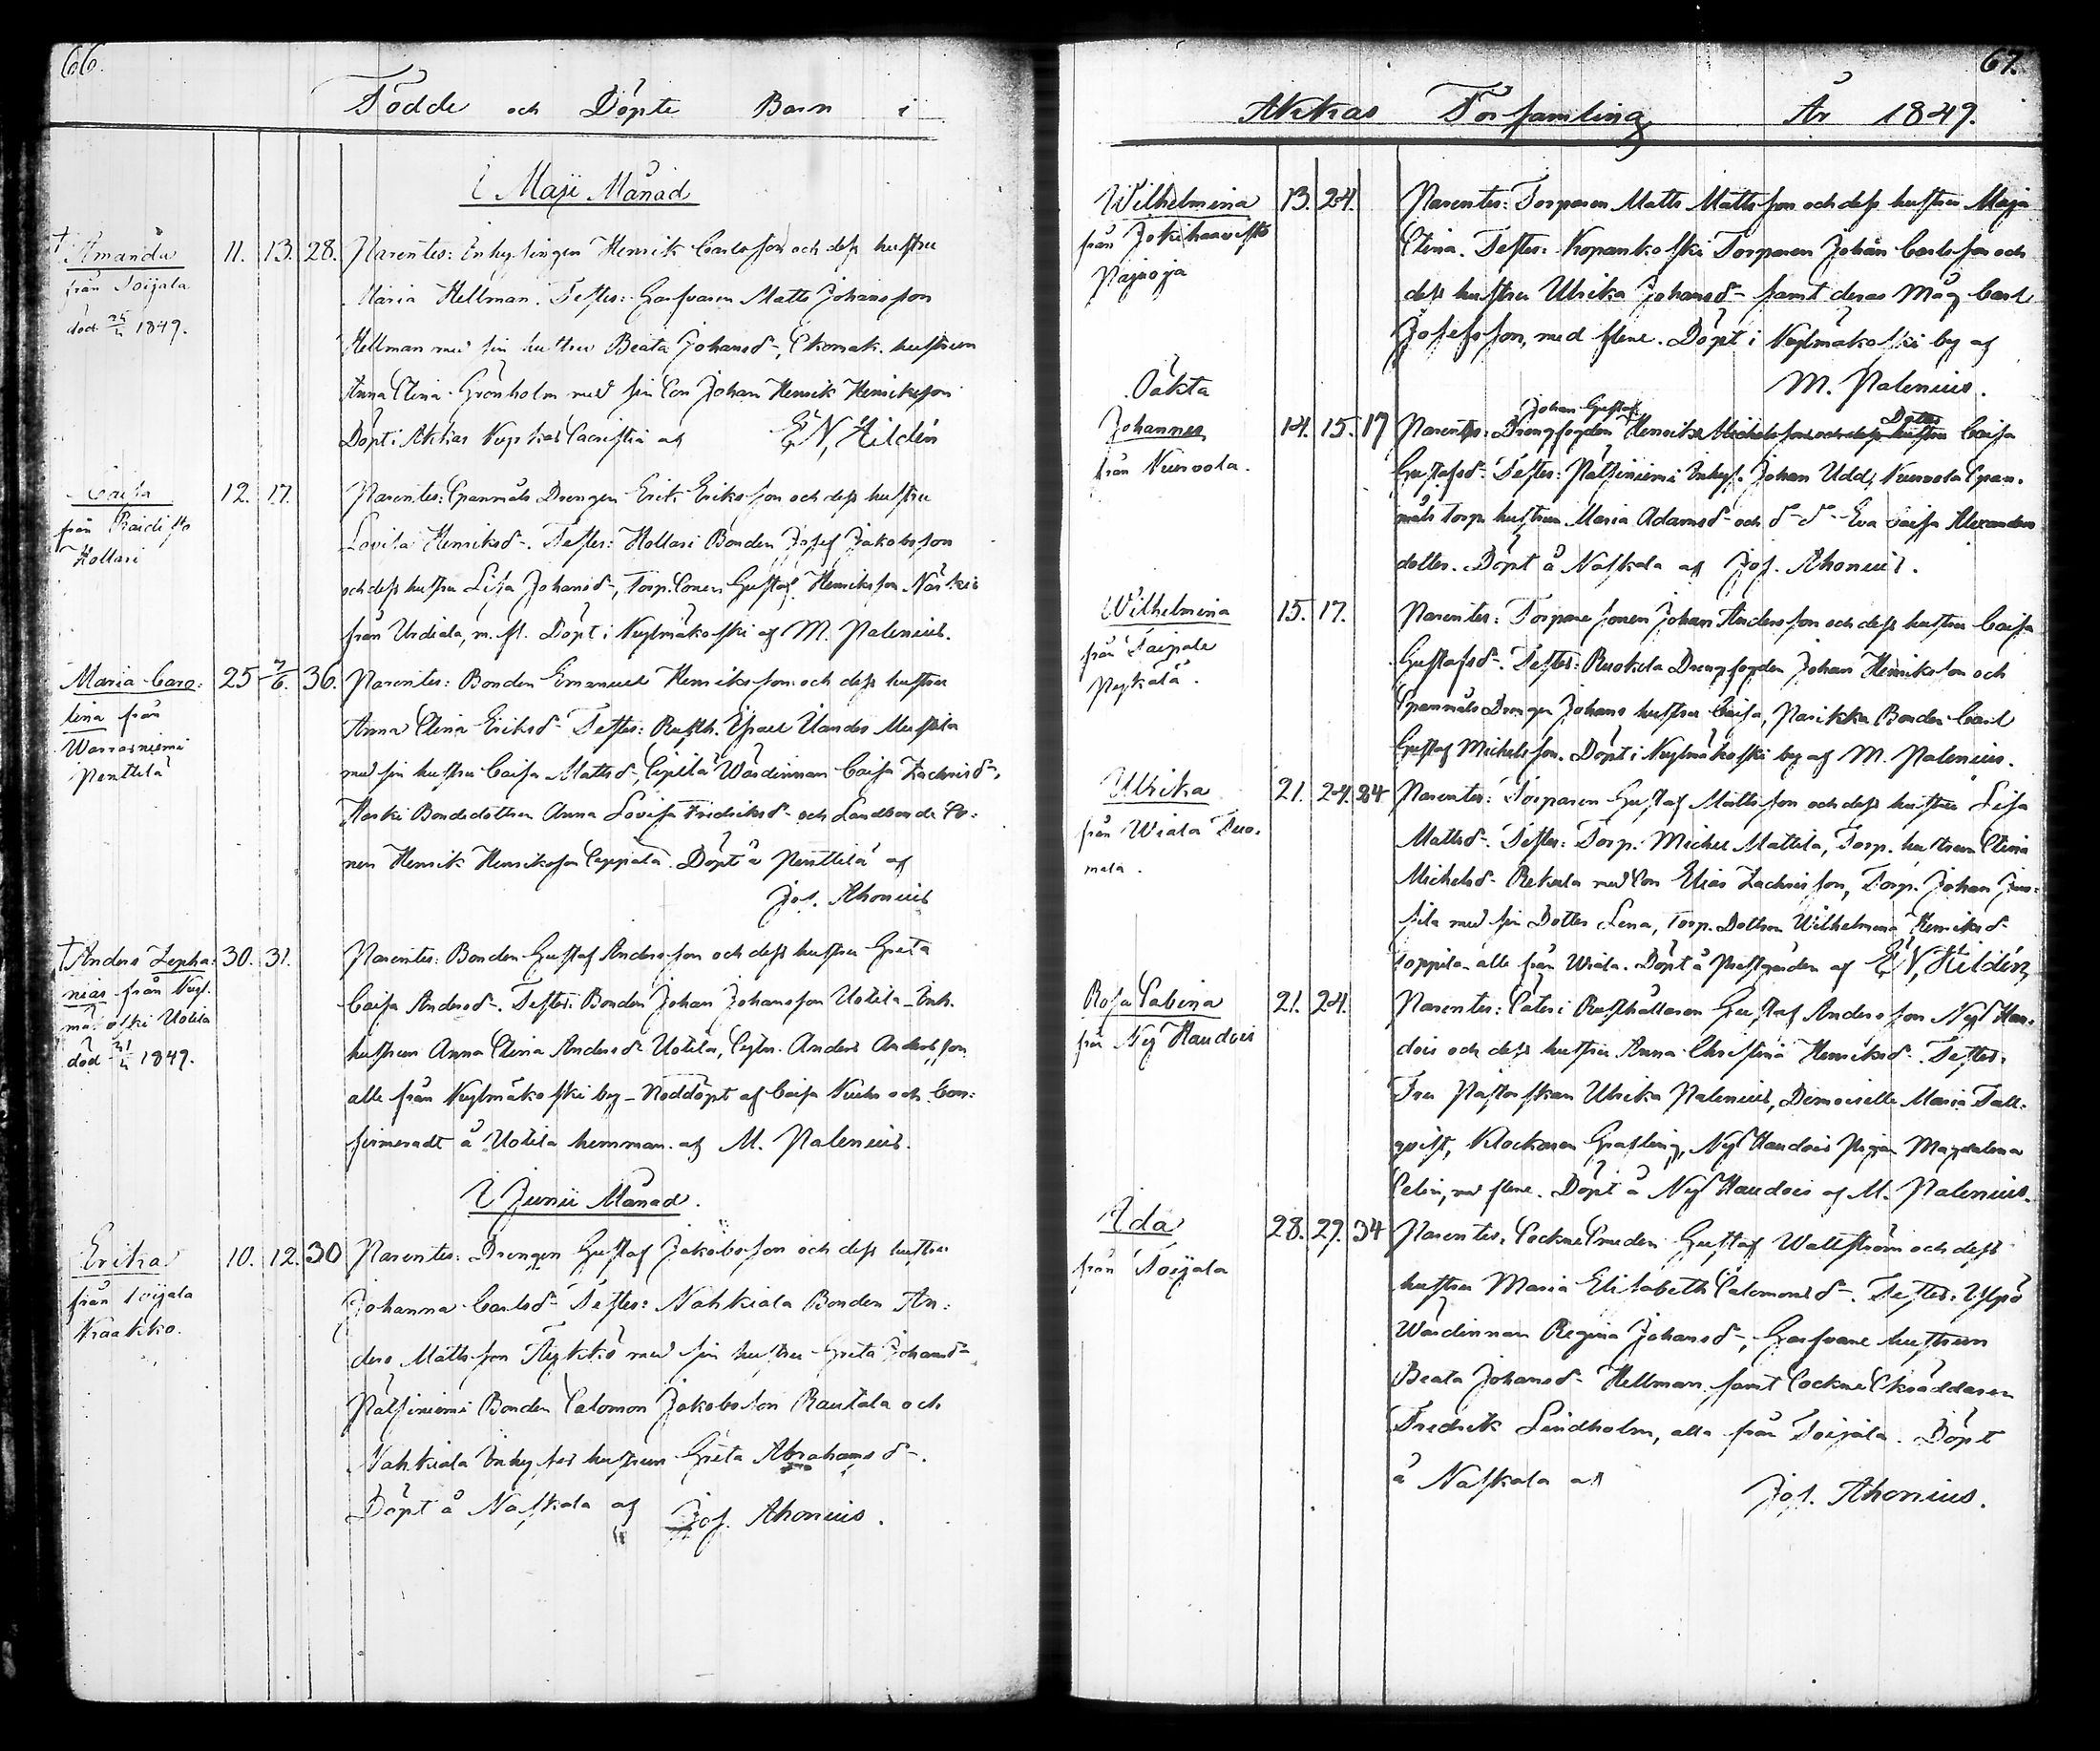 66.
Födde och Döpte Barn i
I Maji Månad
† Amanda 11. 13. 28. Parentes: Inhysingen Henrik Carlsson och dess hustru
från Toijala Maria Hellman. Testes: Garfvaren Matts Johansson
död 1849. Hellman med sin hustru Beata Johansd-, Skomak. hustrun
Anna Stina Grönholm med sin Son Johan Henrik Henriksson
Döpt i Akkas Kyrkas Sacristia af E N, Hildén
Caisa 12. 17. Parentes: Spanmåls Drengen Erik Eriksson och dess hustru
från Lovisa Henriksd-. Testes: Hollari Bonden Josef Jakobsson
Hollari och dess hustru Lisa Johansd-, Torp. Sonen Gustaf Henriksson
från Urdiala, m. fl. Döpt i Kylmäkoski af M. Palenius.
Maria Caro: 25 7/6. 36. Parentes: Bonden Emanuel Henriksson och dess hustru
lina från Anna Stina Eriksd- Testes: Rusth. Israel Ulander
Warrasniemi med sin hustru Caisa Mattsd-, Wärdinnan Caisa Zachrisd-,
Penttilä Bondedottren Anna Lovisa Fredriksd- och Landbonde So:
nen Henrik Henriksson Seppälä. Döpt å Penttilä af
Jos. Ahonius
† Anders Zepha: 30. 31. Parentes: Bonden Gustaf Andersson och dess hustru Greta
nias från Kyl. Caisa Andersd-. Testes: Bonden Johan Johansson Uotila Inh.
mäkoski Uotila hustrun Anna Stina Andersd- Uotila, Sytn. Anders Andersson
död 1849. alle från Kylmäkoski by - Nöddöpt af Caisa och Con:
firmeradt å Uotila hemman af M. Palenius.
I Junii Månad.
Erika 10. 12. 30 Parentes: Drengen Gustaf Jakobsson och dess hustru
från Toijala Johanna Carlsd- Testes: Nahkiala Bonden An:
Kraakko. ders Mattsson med sin hustru Greta Johansd-
Pätsiniemi Bonden Salomon Jakobsson Rautala och
Nahkiala Inhyses hustrun Greta Abrahamsd-.
Döpt å Naskala af Jos. Ahonius.
67.
Akkas Församling År 1849.
Wilhelmina 13. 24. Parentes: Torparen Matts Mattsson och dess hustru Maja
från Jokihaavisto Stina. Testes: Kopankoski Torparen Johan Carlsson och
Pajuoja dess hustru Ulrika Johansd- samt deras Måg Carl
Josefsson, med flere. Döpt i Kylmäkoski by af
M. Palenius.
Oäkta
Johan Gustaf Dotter
Johannes 14. 15. 17 Parentes: Drengfogden Henrik Michelsson och dess hustru Caisa
från Kurvola. Gustafsd- Testes: Pätsiniemi Inhys. Johan Udd, Kurvola Span.
måls Torp. hustrun Maria Adamsd- och d- d- Eva Caisa Alexanders
dotter. Döpt å Naskala af Jos. Ahonius.
Wilhelmina 15. 17. Parentes: Torpare Sonen Johan Andersson och dess hustru Caisa
från Taipale Gustafsd-. Testes: Ruokela Drengfogden Johan Henriksson och
Spanmåls Drengen Johans hustru Caisa, Parikka Bonden Carl
Gustaf Michelsson. Döpt i Kylmäkoski by af M. Palenius.
Ulrika 21. 24. 34 Parentes: Torparen Gustaf Mattsson och dess hustru Lisa
från Wiala Tuo. Mattsd-. Testes: Torp. Michel Mattila, Torp. hustrun Stina
mala. Michelsd- Rekula med Son Elias Zachrisson, Torp. Johan
sila med sin Dotter Lena, Torp. Dottren Wilhelmina Henriksd-
Soppila alle från Wiala. Döpt å Prestgården af E N, Hildén
Rosa Sabina 21. 24. Parentes: Säteri Rusthållaren Gustaf Andersson Nygd Hau:
från Ny Haudois dois och dess hustru Anna Christina Henriksd-. Testes:
Fru Pastorskan Ulrika Palenius, Demoiselle Maria Tall:
qvist, Klockaren Grasling, Nygd Haudois Pigan Magdalena
Celin, med flere. Döpt å Nygd Haudois af M. Palenius.
Ida 28. 29. 34 Parentes: Sockne Smeden Gustaf Wallström och dess
från Toijala hustru Maria Elisabeth Salomonsd-. Testes:
Wärdinnan Regina Johansd-, Garfvare hustrun
Beata Johansd- Hellman samt Sockne Skräddaren
Fredrik Lindholm, alla från Toijala. Döpt
å Naskala af Jos. Ahonius.